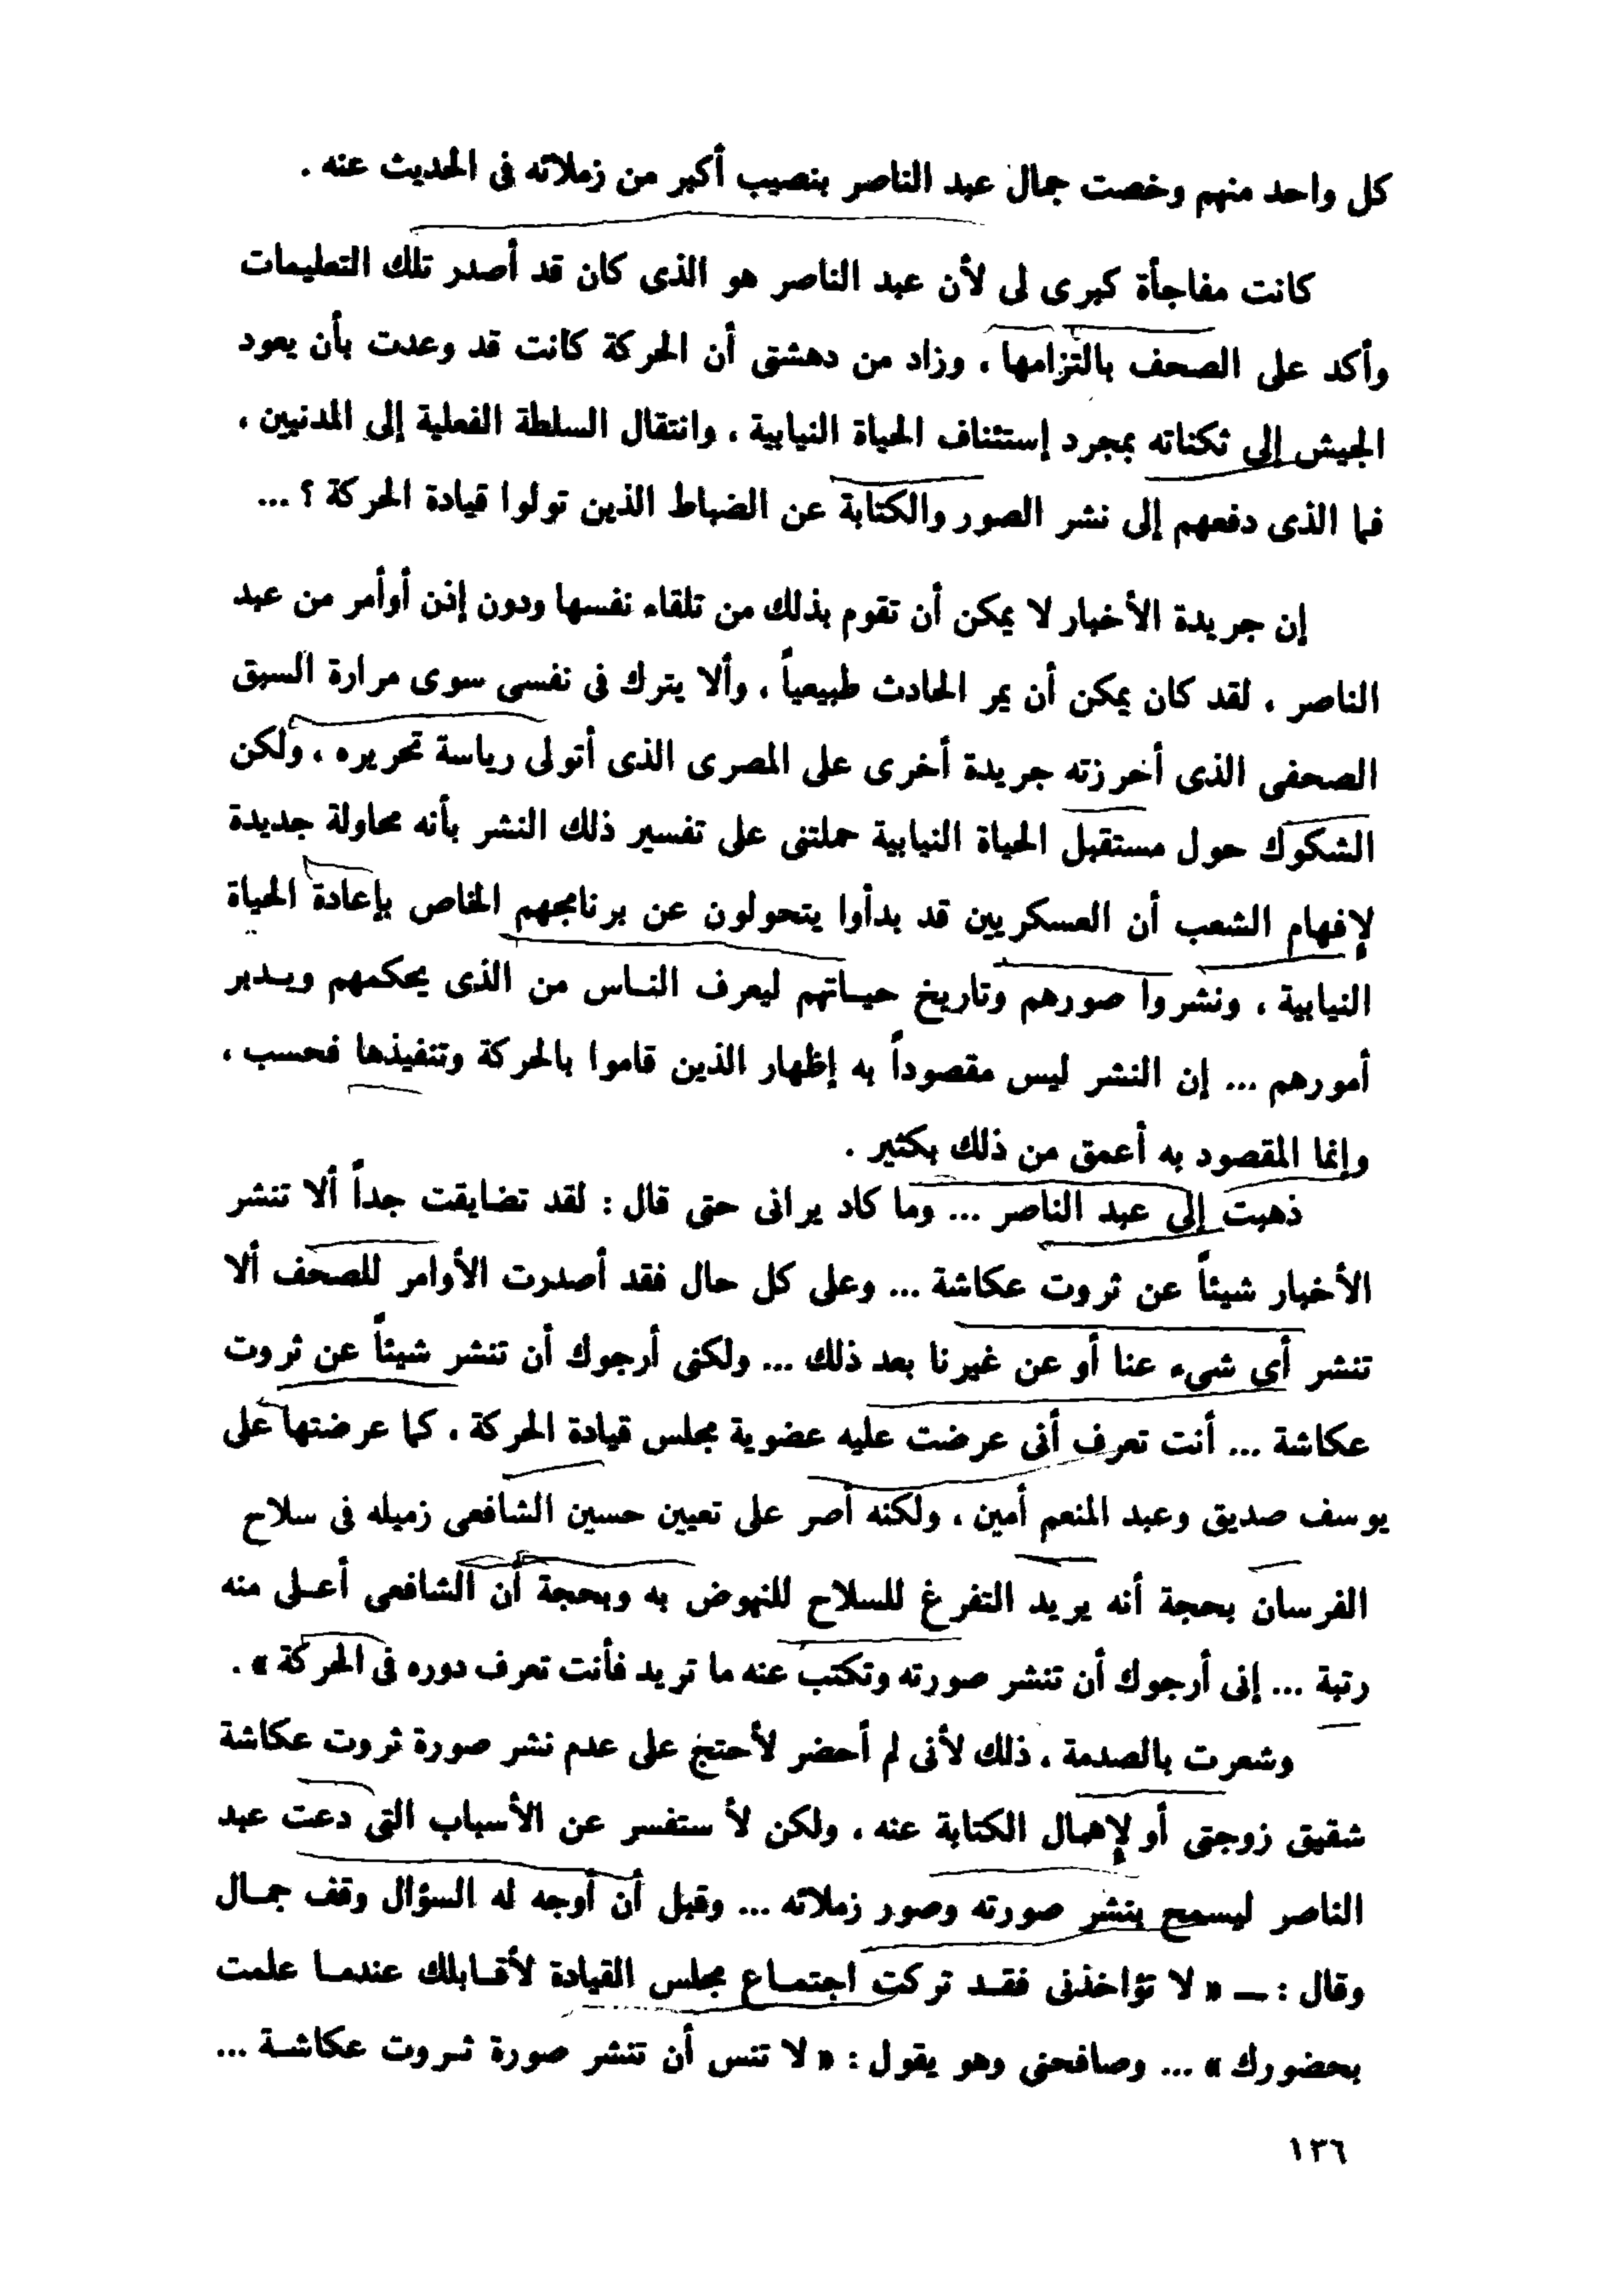 كل واحد منهم وخصت جمال عبد الناصر بنصيب أكبر من زملائه فى الحديث عنه .
كانت مفاجأة كبرى لى لأن عبد الناصر هو الذى كان قد أصدر تلك التعليمات
وأكد على الصحف بالتزامها ، وزاد من دهشتى أن الحركة كانت قد وعدت بأن يعود
الجيش إلى ثكناته بمجرد إستئناف الحياة النيابية ، وانتقال السلطة الفعلية إلى المدنيين ،
فما الذى دفعهم إلى نشر الصور والكتابة عن الضباط الذين تولوا قيادة الحركة ؟ ...
إن جريدة الأخبار لا يمكن أن تقوم بذلك من تلقاء نفسها ودون إذن أوأمر من عبد
الناصر ، لقد كان يمكن أن يمر الحادث طبيعياً ، وألا يترك فى نفسى سوى مرارة السبق
الصحفى الذى أخرزته جريدة أخرى على المصرى الذى أتولى رياسة تحريره ، ولكن
الشكوك حول مستقبل الحياة النيابية حملتنى على تفسير ذلك النشر بأنه محاولة جديدة
لإفهام الشعب أن العسكريين قد بدأوا يتحولون عن برنامجهم الخاص بإعادة الحياة
النيابية ، ونشروا صورهم وتاريخ حيـاتهم ليعرف النـاس من الذى يحكمهم ويـدبر
أمورهم ... إن النشر ليس مقصوداً به إظهار الذين قاموا بالحركة وتنفيذها فحسب ،
وإنما المقصود به أعمق من ذلك بكثير .
ذهبت إلى عبد الناصر ... وما كاد يرانى حتى قال : لقد تضايقت جداً ألا تنشر
الأخبار شيئاً عن ثروت عكاشة ... وعلى كل حال فقد أصدرت الأوامر للصحف ألا
تنشر أى شىء عنا أو عن غيرنا بعد ذلك ... ولكنى أرجوك أن تنشر شيئاً عن ثروت
عكاشة ... أنت تعرف أنى عرضت عليه عضوية مجلس قيادة الحركة ، كما عرضتها على
يوسف صديق وعبد المنعم أمين ، ولكنه أصر على تعيين حسين الشافعى زميله فى سلاح
الفرسان بحجة أنه يريد التفرغ للسلاح للنهوض به وبحجة أن الشافعى أعـلى منه
رتبة ... إنى أرجوك أن تنشر صورته وتكتب عنه ما تريد فأنت تعرف دوره فى الحركة » .
وشعرت بالصدمة ، ذلك لأنى لم أحضر لأحتج على عدم نشر صورة ثروت عكاشة
شقيق زوجتى أو لإهمال الكتابة عنه ، ولكن لأ ستفسر عن الأسباب التى دعت عبد
الناصر ليسمح بنشر صورته وصور زملائه ... وقبل أن أوجه له السؤال وقف جمـال
وقال : ــ « لا تؤاخذنى فقـد تركت اجتمـاع مجلس القيادة لأقـابلك عندمـا علمت
بحضورك » ... وصافحنى وهو يقول : « لا تنس أن تنشر صورة ثـروت عكاشـة ...
١٣٦